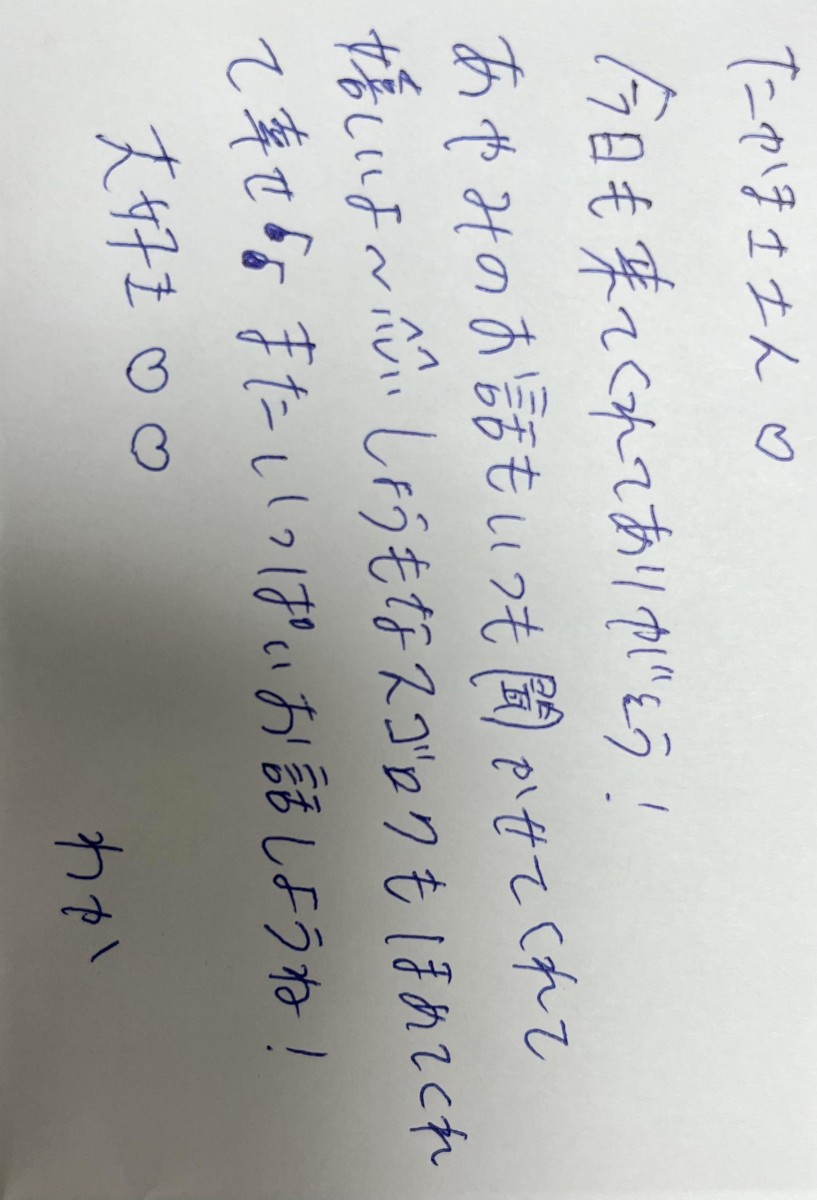 たかまささん♡
今日も来てくれてありがとう!
あやみのお話もいつも聞かせてくれて
嬉しいよ〜 しょうもなスゴロクもほめてくれ
て幸せ またいっぱいお話しようね!
大好き♡♡
わか